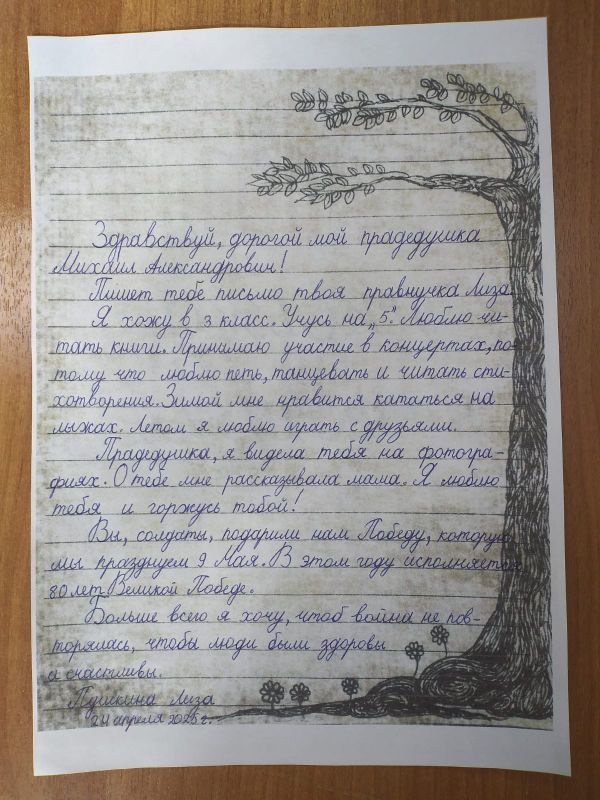 Здравствуй, дорогой мой прадедушка
Михаил Александрович!
Пишет тебе письмо твоя правнучка Лиза.
Я хожу в 3 класс. Учусь на „5". Люблю чи-
тать книги. Принимаю участие в концертах, по-
тому что люблю петь, танцевать и читать сти-
хотворения. Зимой мне нравится кататься на
лыжах. Летом я люблю играть с друзьями.
Прадедушка, я видела тебя на фотогра-
фиях. О тебе мне рассказывала мама. Я люблю
тебя и горжусь тобой!
Вы, солдаты, подарили нам Победу, которую
мы празднуем 9 Мая. В этом году исполняется
80 лет Великой Победе.
Больше всего я хочу, чтоб война не пов-
торялась, чтобы люди были здоровы
и счастливы.
Пушкина Лиза
24 апреля 2025 г.